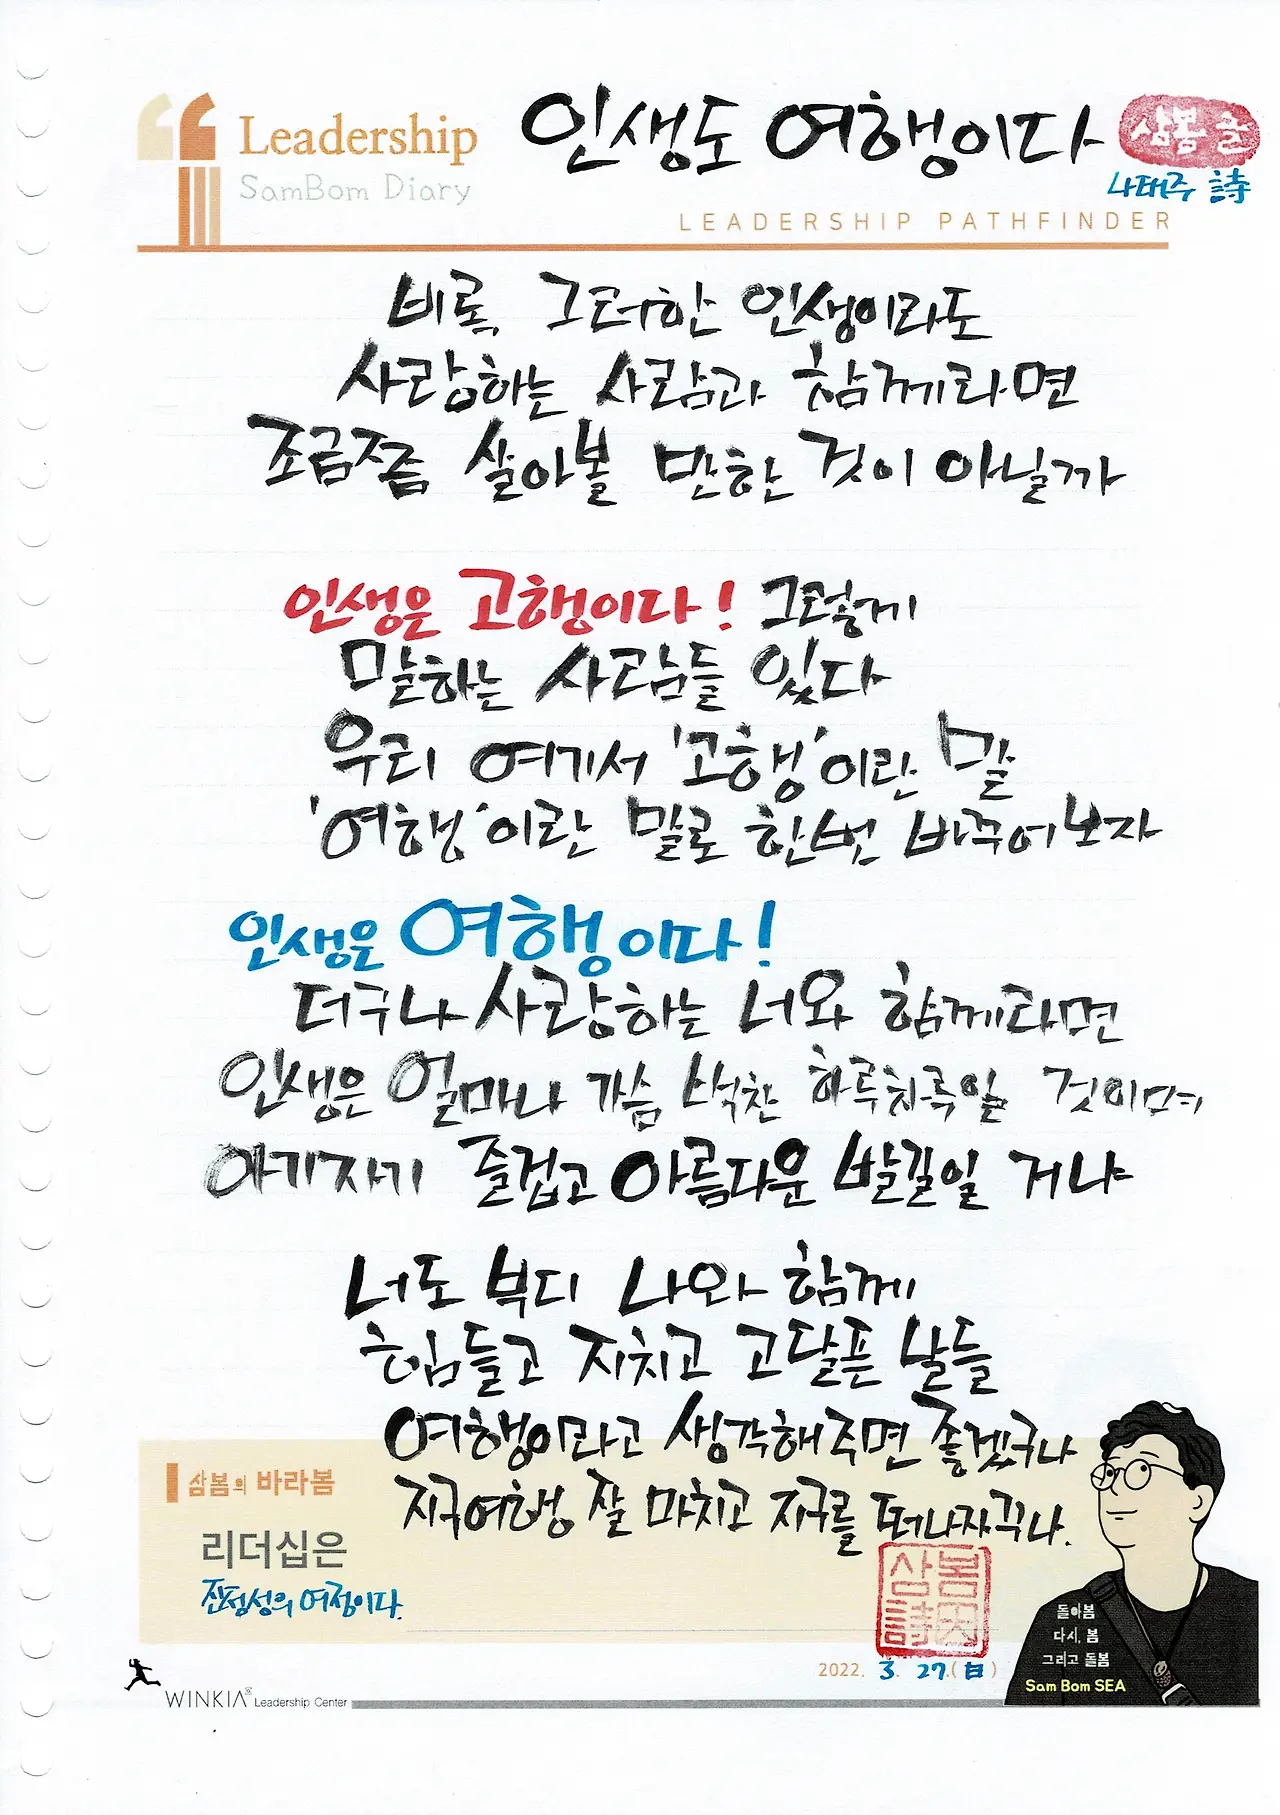 Leadership
SamBom Diary
인생도 여행이다
삼봄 글
나태주 詩
LEADERSHIP PATHFINDER
비록, 그러한 인생이라도
사랑하는 사람과 함께라면
조금쯤 살아볼 만한 것이 아닐까
인생은 고행이다! 그렇게
말하는 사람들 있다
우리 여기서 '고행'이란 말
'여행'이란 말로 한번 바꾸어보자
인생은 여행이다!
더구나 사랑하는 너와 함께라면
인생은 얼마나 가슴 벅찬 하루하루일 것이며
아기자기 즐겁고 아름다운 발길일 거냐
너도 부디 나와 함께
힘들고 지치고 고달픈 날들
여행이라고 생각해주면 좋겠구나
지구여행 잘 마치고 지구를 떠나자꾸나.
삼봄의 바라봄
리더십은
진정성의 여정이다.
삼봄
詩
돌아봄
다시, 봄
그리고 돌봄
Sam Bom SEA
2022. 3. 27.(日)
WINKIA Leadership Center